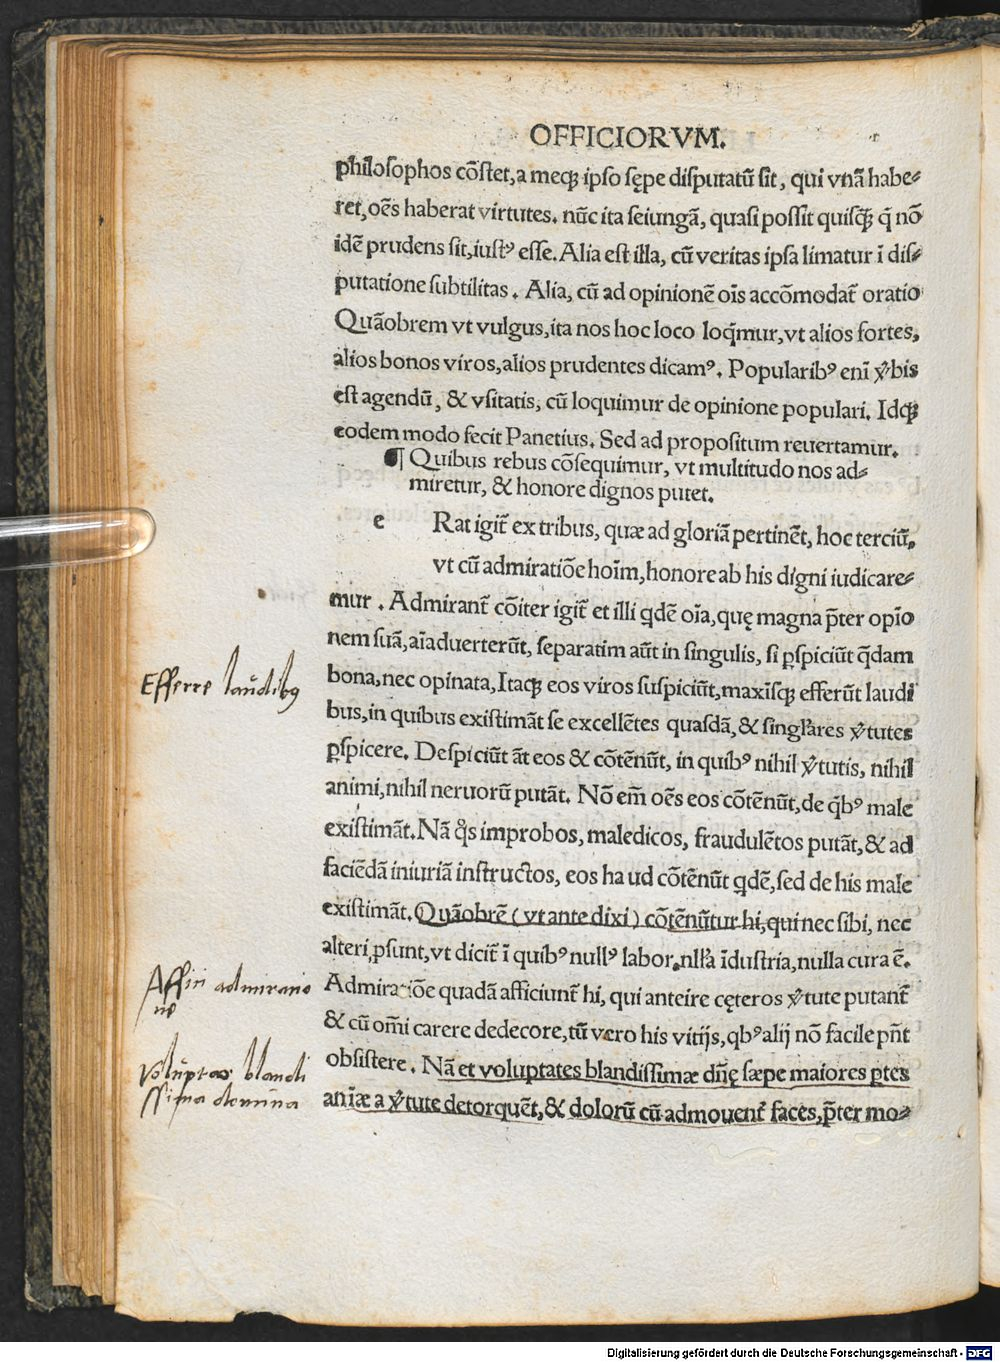 OFFICIORVM.
philosophos cōstet, a meqꝫ ipso sępe disputatū sit, qui vnā habe⸗
ret, oēs haberat virtutes. nūc ita seiungā, quasi possit quisqꝫ q̄ nō
idē prudens sit, iustꝰ esse. Alia est illa, cū veritas ipsa limatur ī dis⸗
putatione subtilitas. Alia, cū ad opinionē oīs accōmodat᷑ oratio
Quāobrem vt vulgus, ita nos hoc loco loq̄mur, vt alios fortes,
alios bonos viros, alios prudentes dicamꝰ. Popularibꝰ enī v̾bis
est agendū, & vsitatis, cū loquimur de opinione populari. Idqꝫ
eodem modo fecit Panetius. Sed ad propositum reuertamur.
¶ Quibus rebus cōsequimur, vt multitudo nos ad⸗
miretur, & honore dignos putet.
e Rat igit᷑ ex tribus, quæ ad gloriā pertinēt, hoc terciū,
vt cū admiratiōe hoīm, honore ab his digni iudicare⸗
mur. Admirant᷑ cōiter igit᷑ et illi qdē oīa, quę magna p̄ter opīo
nem suā, aīaduerterūt, separatim aūt in singulis, si ꝑspiciūt q̄dam
bona, nec opinata, Itaqꝫ eos viros suspiciūt, maxīsqꝫ efferūt laudi
bus, in quibus existimāt se excellētes quasdā, & singl̄ares v̾tutes
ꝑspicere. Despiciūt āt eos & cōtēnūt, in quibꝰ nihil v̾tutis, nihil
animi, nihil neruorū putāt. Nō em̄ oēs eos cōtēnūt, de qbꝰ male
existimāt. Nā q̊s improbos, maledicos, fraudulētos putāt, & ad
faciēdā iniuriā instructos, eos haud cōtēnūt qdē, sed de his male
existimāt. Quāobrē (vt ante dixi) cōtēnūtur hi, qui nec sibi, nec
alteri, ꝓsunt, vt dicit᷑ ī quibꝰ nullꝰ labor, nll̄a īdustria, nulla cura ē.
Admiratiōe quadā afficiunt᷑ hi, qui anteire cęteros v̾tute putant᷑
& cū om̄i carere dedecore, tū vero his vitijs, qbꝰ alij nō facile pn̄t
obsistere. Nā et voluptates blandissimæ dn̄ę sæpe maiores ꝑtes
aniæ a v̾tute detorquēt, & dolorū cū admouent᷑ faces, p̄ter mo⸗
Efferre laudibꝰ
Affici admiratio
ne
voluptas blandi
ssima domina
Digitalisierung gefördert durch die Deutsche Forschungsgemeinschaft - DFG